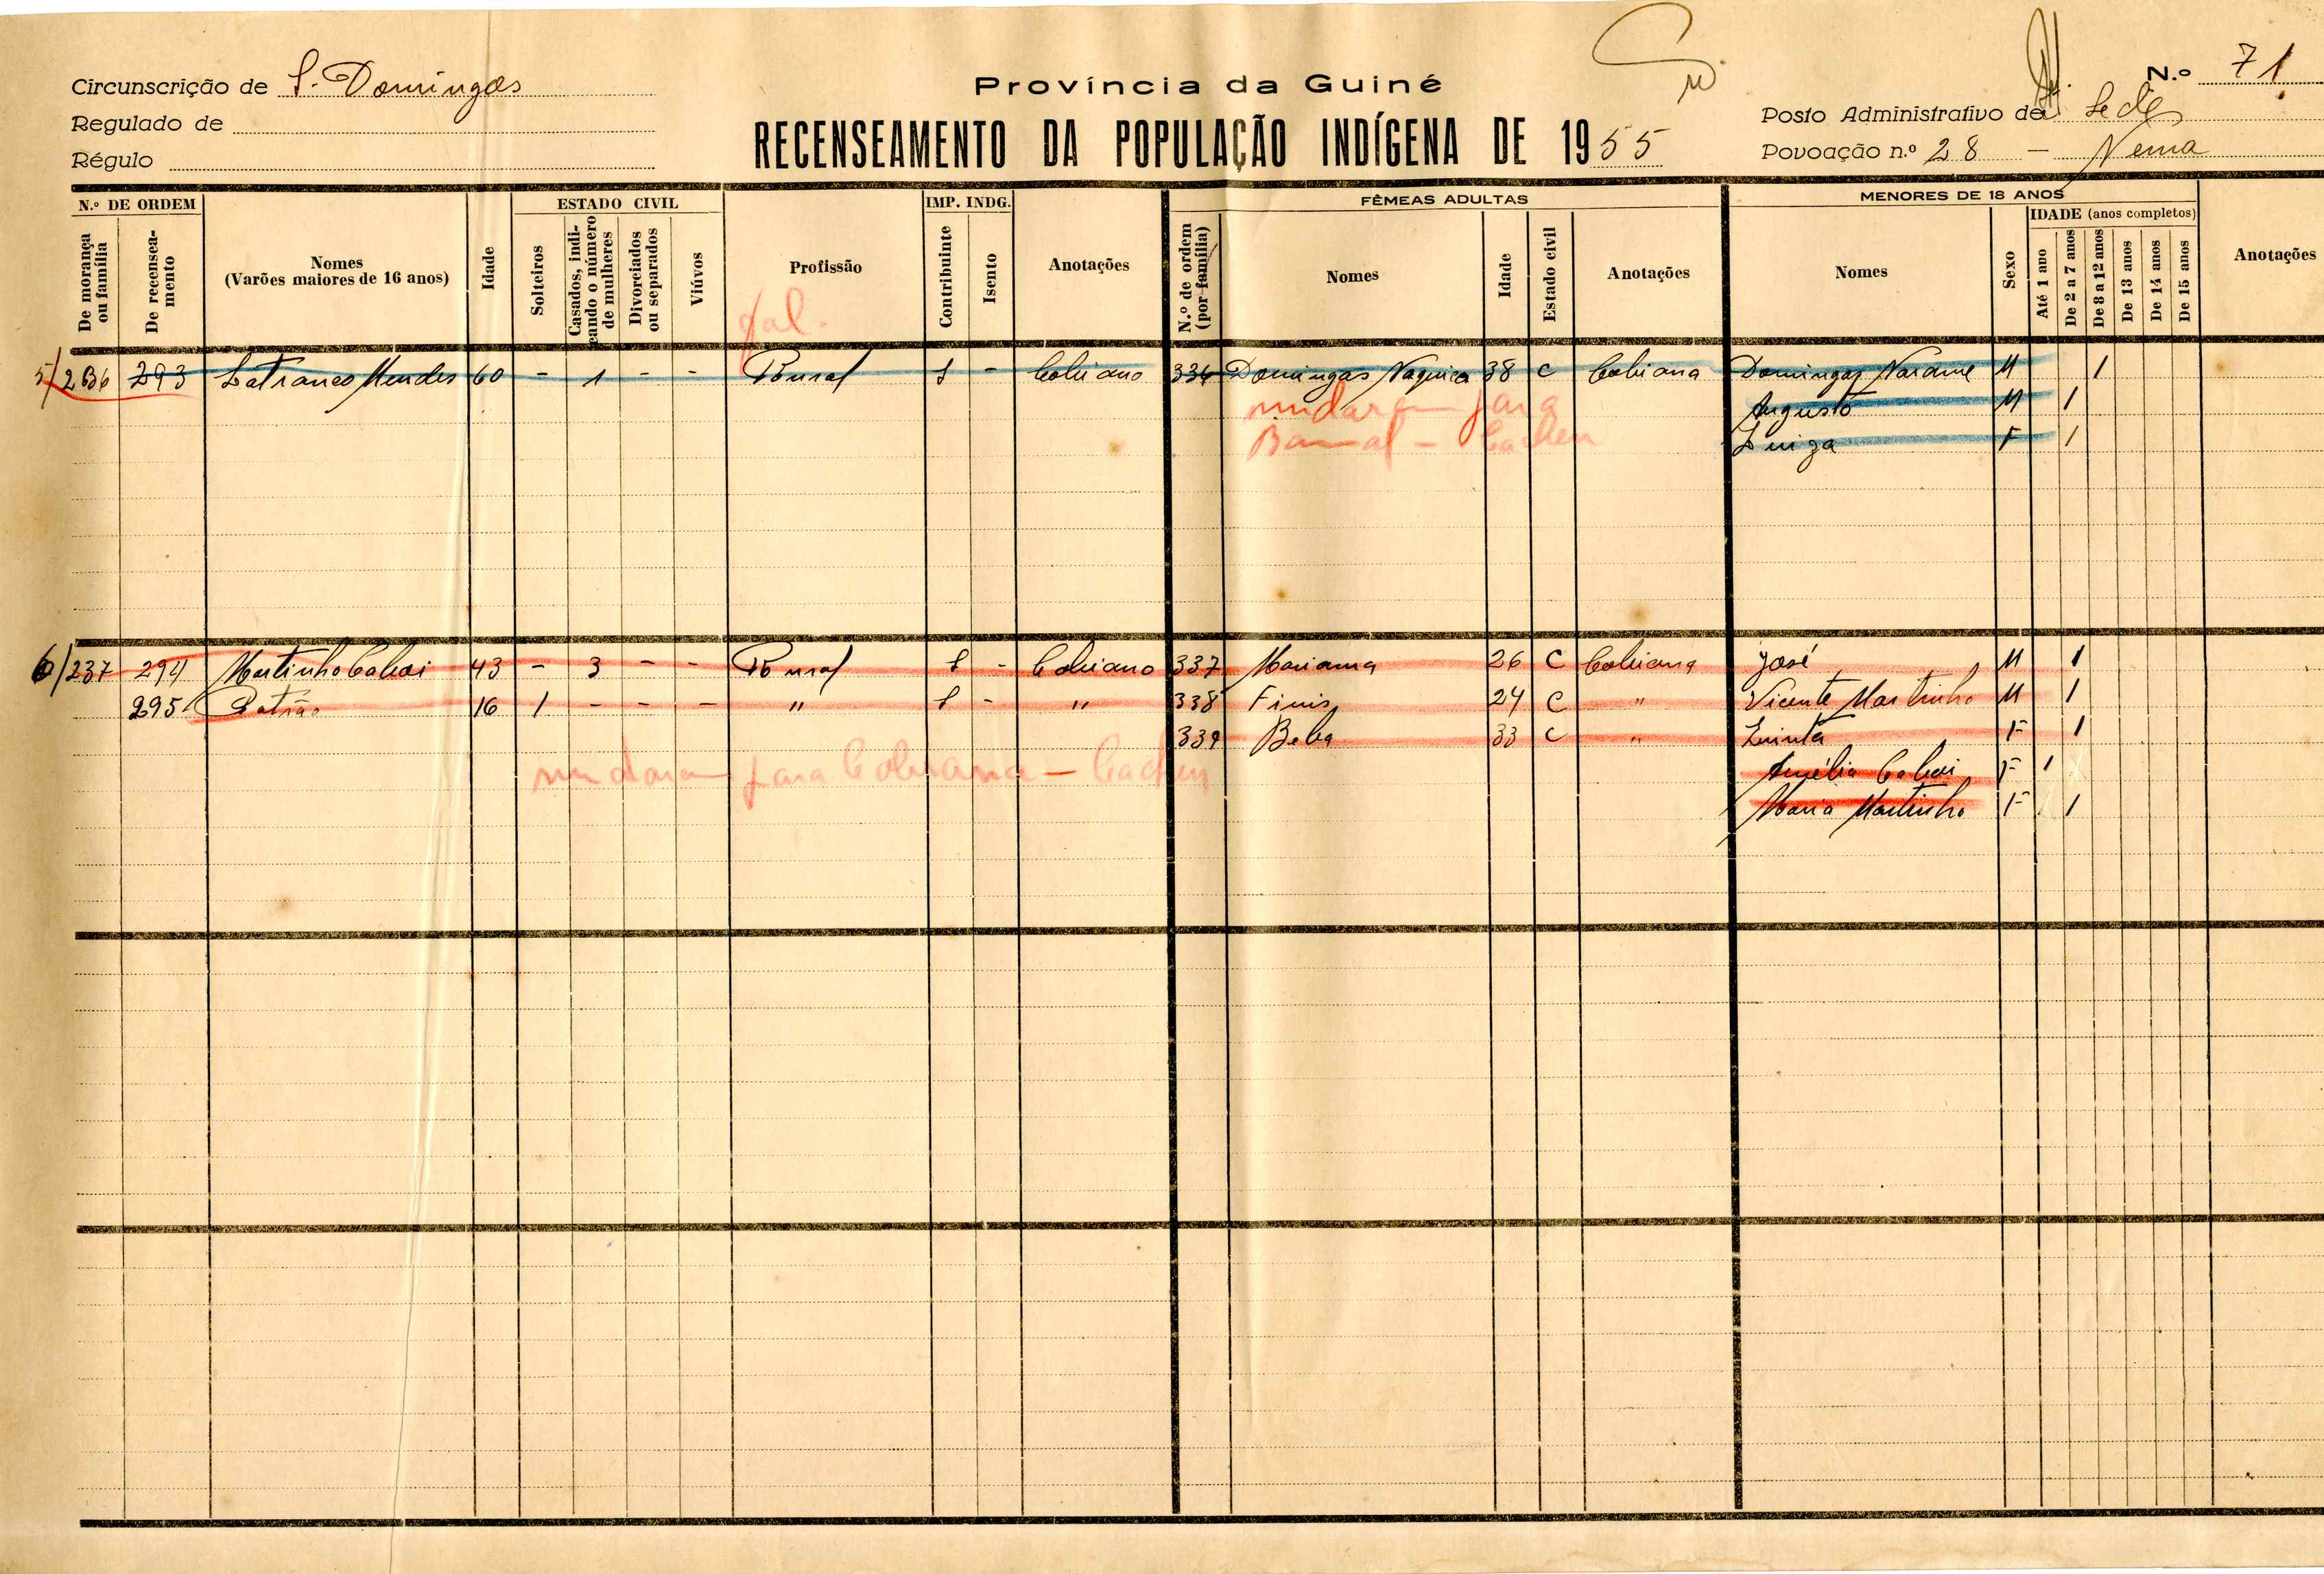 Circunscrição de S. Domingos
Regulado de
Régulo
Província da Guiné
RECENSEAMENTO DA POPULAÇÃO INDÍGENA DE 1955
N.º 71
Posto Administrativo de Sede
Povoação n.º 28 - Nema
N.º DE ORDEM
De morança ou família
De recenseamento
Nomes
(Varões maiores de 16 anos)
Idade
ESTADO CIVIL
Solteiros
Casados, indicando o número de mulheres
Divorciados ou separados
Viúvos
Profissão
IMP. INDG.
Contribuinte
Isento
Anotações
FÊMEAS ADULTAS
N.º de ordem (por família)
Nomes
Idade
Estado civil
Anotações
MENORES DE 18 ANOS
Nomes
Sexo
IDADE (anos completos)
Até 1 ano
De 2 a 7 anos
De 8 a 12 anos
De 13 anos
De 14 anos
De 15 anos
Anotações
fal.
5/236 293 Mendes 60 - 1 - - Rural 1 - Cobiano 336 Domingas 38 C Cobiana Domingos M 1
mudaram para Augusto M 1
- Cacheu Luiza F 1
6/237 294 Martinho Caboi 43 - 3 - - Rural 1 - Cobiano 337 Mariama 26 C Cobiana José M 1
295 16 1 - - - " 1 - " 338 Finis 24 C " Vicente Martinho M 1
339 Beba 33 C " Quinta F 1
mudaram para Cobiana - Cacheu
Amélia Caboi F 1
Maria Martinho F 1